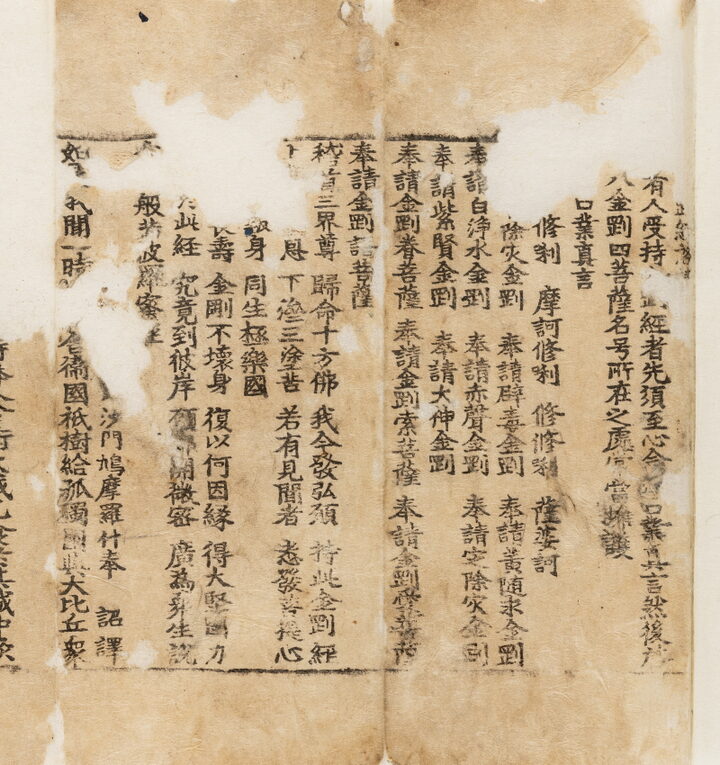 有人受持 經者先須至心念 口業真言然後
八金剛四菩薩名号所在之處 常擁護
口業真言
修唎 摩訶修唎 修修唎 薩婆訶
除灾金剛 奉請辟毒金剛 奉請黃随求金剛
奉請白浄水金剛 奉請赤聲金剛 奉請定除灾金剛
奉請紫賢金剛 奉請大神金剛
奉請金剛眷菩薩 奉請金剛索菩薩 奉請金剛愛菩薩
奉請金剛語菩薩
稽首三界尊 歸命十方佛 我今發弘願 持此金剛經
恩 下濟三塗苦 若有見聞者 悉發菩提心
身 同生極樂國
壽 金剛不壞身 復以何因緣 得大堅固力
此經 究竟到彼岸 願 開微密 廣為衆生説
般若波羅蜜經
沙門鳩摩羅什奉 詔譯
如 我聞一時 衛國祇樹給孤獨園與大比丘衆